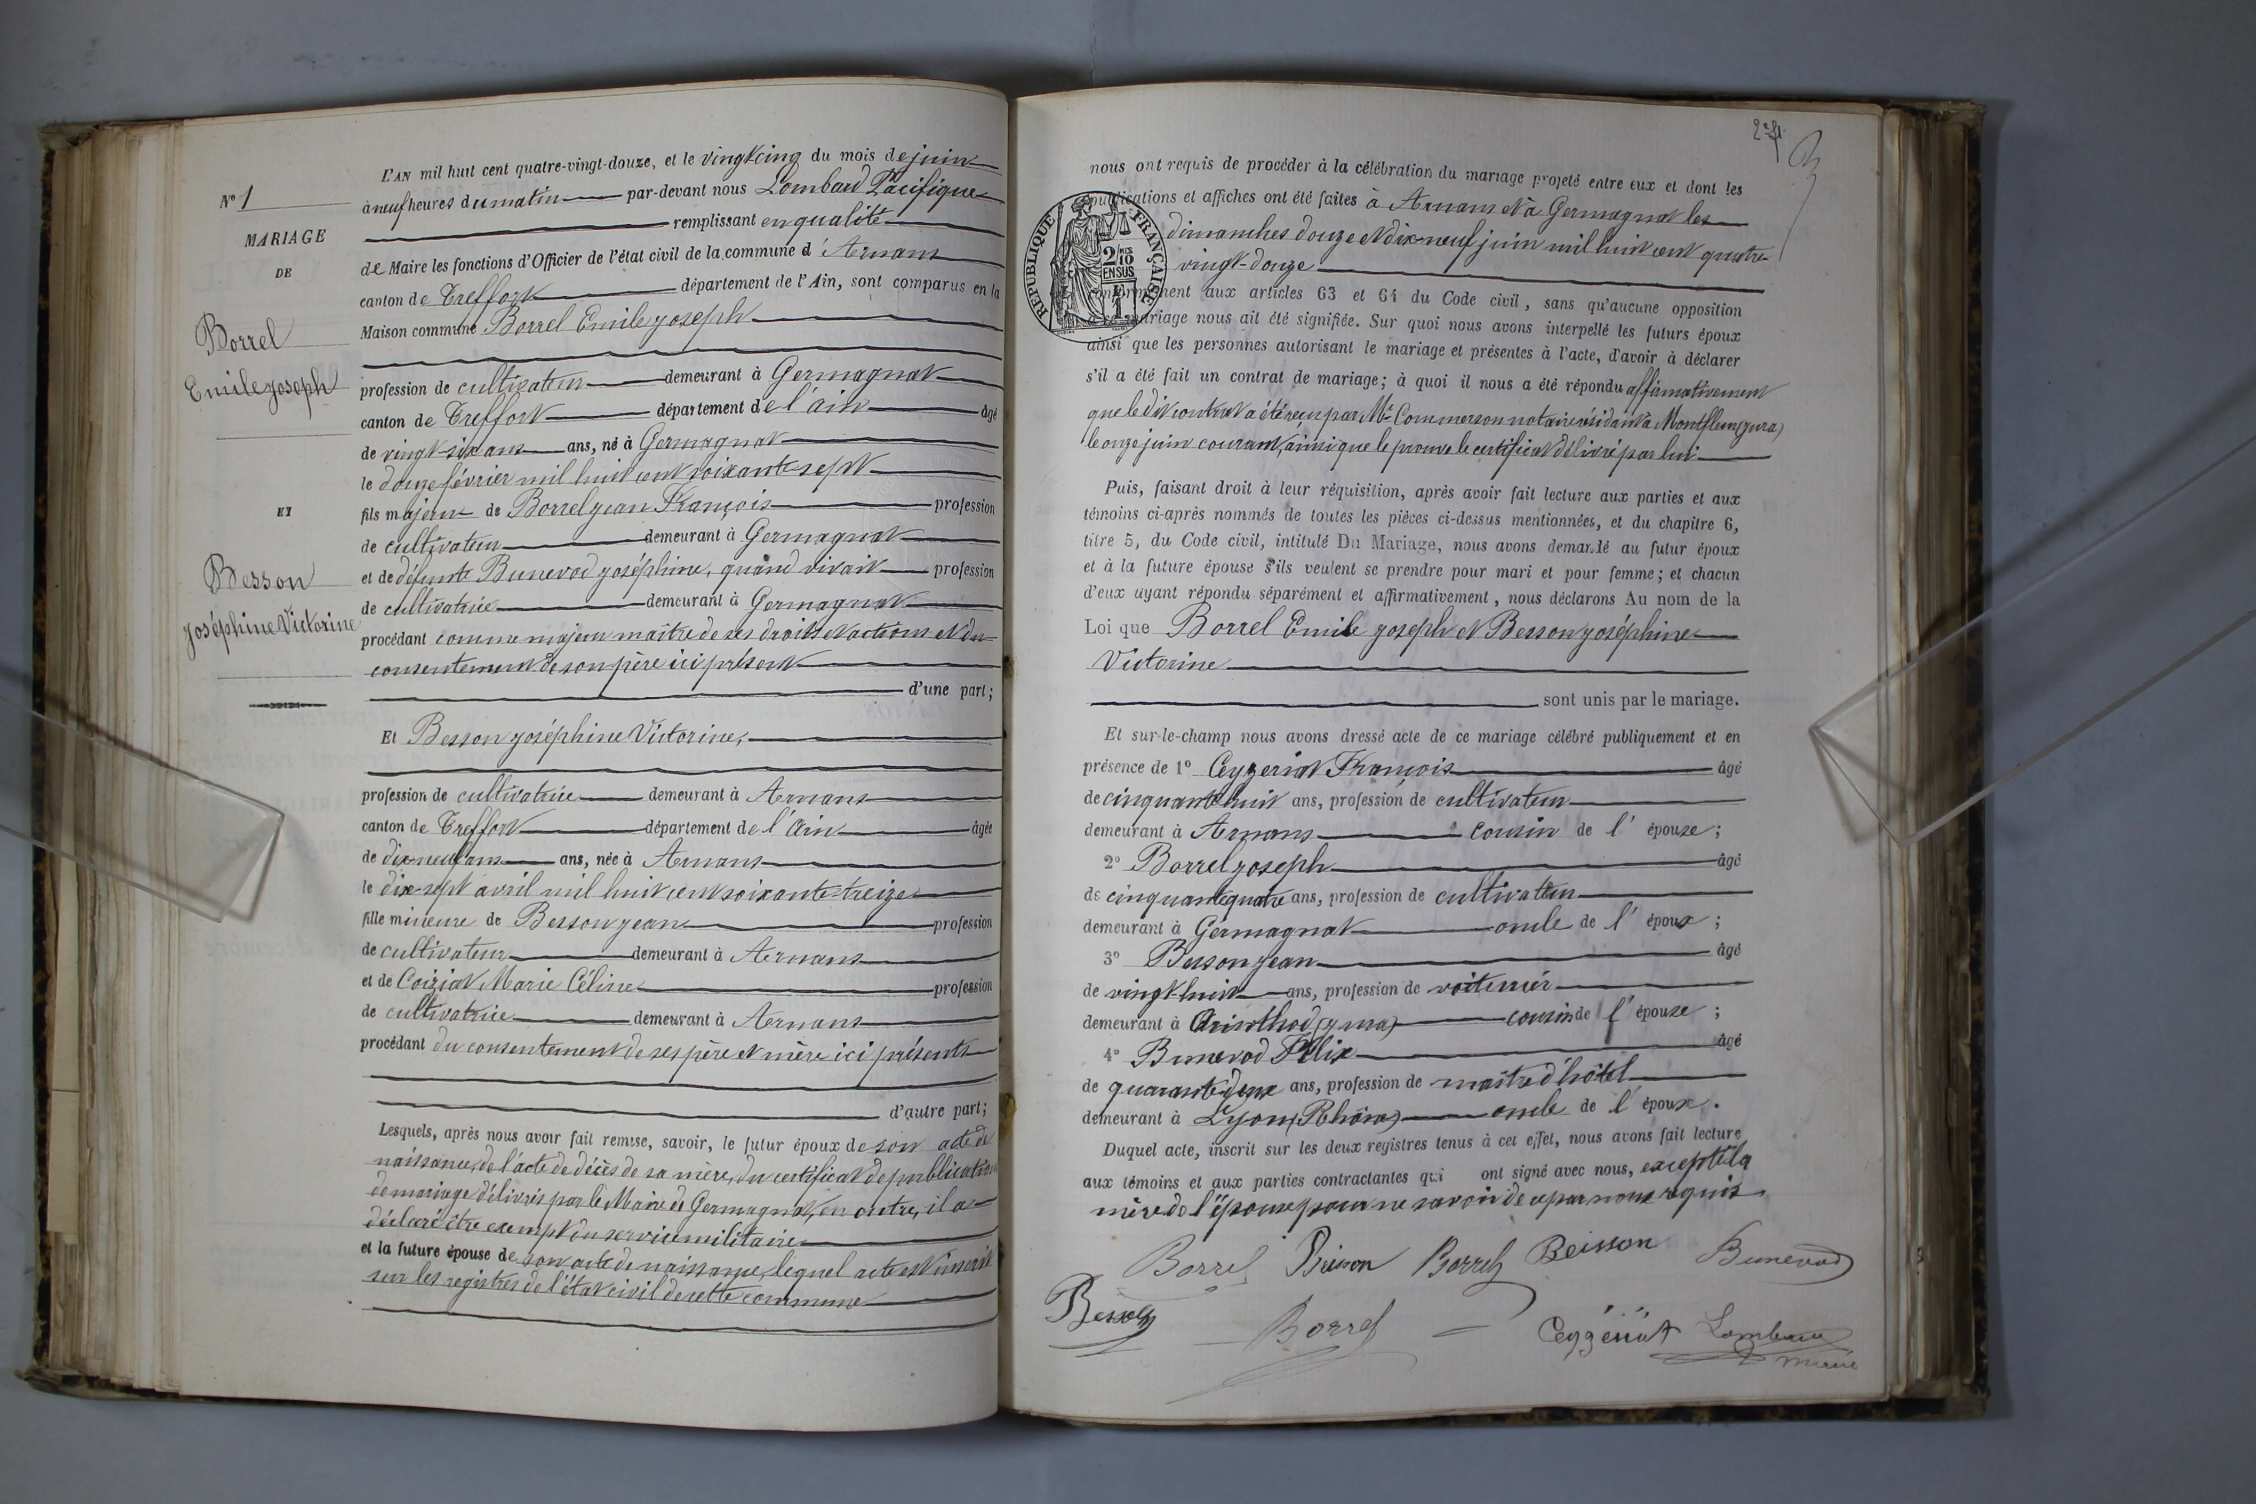 N° 1
MARIAGE
DE
Borrel
Emile Joseph
ET
Besson
Joséphine Victorine
L'AN mil huit cent quatre-vingt-douze, et le vingt cinq du mois de juin
à neuf heures du matin par-devant nous Lombard Pacifique
remplissant en qualité
de Maire les fonctions d'Officier de l'état civil de la commune d'Arnans
canton de Treffort département de l'Ain, sont comparus en la
Maison commune Borrel Emile Joseph
profession de cultivateur demeurant à Germagnat
canton de Treffort département de l'ain âgé
de vingt-six ans ans, né à Germagnat
le douze février mil huit cent soixante sept
fils majeur de Borrel Jean François profession
de cultivateur demeurant à Germagnat
et de défunte Bunevod Joséphine, quand vivait profession
de cultivatrice demeurant à Germagnat
procédant comme majeur maître de ses droits et actions et du
consentement de son père ici présent
d'une part;
Et Besson Joséphine Victorine,
profession de cultivatrice demeurant à Arnans
canton de Treffort département de l'Ain âgée
de dix-neuf ans ans, née à Arnans
le dix-sept avril mil huit cent soixante-treize
fille mineure de Besson Jean profession
de cultivateur demeurant à Arnans
et de Coiziat Marie Céline profession
de cultivatrice demeurant à Arnans
procédant du consentement de ses père et mère ici présents
d'autre part;
Lesquels, après nous avoir fait remise, savoir, le futur époux de son acte de
naissance, de l'acte de décès de sa mère, du certificat de publication
de mariage délivrés par le Maire de Germagnat, en outre, il a
déclaré être exempt du service militaire
et la future épouse de son acte de naissance, lequel acte est inscrit
sur les registres de l'état civil de cette commune
nous ont requis de procéder à la célébration du mariage projeté entre eux et dont les
publications et affiches ont été faites à Arnans et à Germagnat les
dimanches douze et dix-neuf juin mil huit cent quatre-
vingt-douze
RÉPUBLIQUE FRANÇAISE
2/10 EN SUS
conformément aux articles 63 et 64 du Code civil, sans qu'aucune opposition
à ce mariage nous ait été signifiée. Sur quoi nous avons interpellé les futurs époux
ainsi que les personnes autorisant le mariage et présentes à l'acte, d'avoir à déclarer
s'il a été fait un contrat de mariage; à quoi il nous a été répondu affirmativement
que le dit contrat a été reçu par Me Commerson notaire résidant à Montfleur (Jura)
le onze juin courant, ainsi que le prouve le certificat délivré par lui
Puis, faisant droit à leur réquisition, après avoir fait lecture aux parties et aux
témoins ci-après nommés de toutes les pièces ci-dessus mentionnées, et du chapitre 6,
titre 5, du Code civil, intitulé Du Mariage, nous avons demandé au futur époux
et à la future épouse s'ils veulent se prendre pour mari et pour femme; et chacun
d'eux ayant répondu séparément et affirmativement, nous déclarons Au nom de la
Loi que Borrel Emile Joseph et Besson Joséphine
Victorine
sont unis par le mariage.
Et sur-le-champ nous avons dressé acte de ce mariage célébré publiquement et en
présence de 1° Ceyzeriat François âgé
de cinquante huit ans, profession de cultivateur
demeurant à Arnans cousin de l'épouse;
2° Borrel Joseph âgé
de cinquante quatre ans, profession de cultivateur
demeurant à Germagnat oncle de l'époux;
3° Besson Jean âgé
de vingt-huit ans, profession de voiturier
demeurant à Arinthod (Jura) cousin de l'épouse;
4° Bunevod Félix âgé
de quarante deux ans, profession de maître d'hôtel
demeurant à Lyon (Rhône) oncle de l'époux.
Duquel acte, inscrit sur les deux registres tenus à cet effet, nous avons fait lecture
aux témoins et aux parties contractantes qui ont signé avec nous, excepté la
mère de l'épouse pour ne savoir de ce par nous requis
Borrel Besson Borrel Beisson Bunevod
Besson Borrel Ceyzériat Lombard
maire